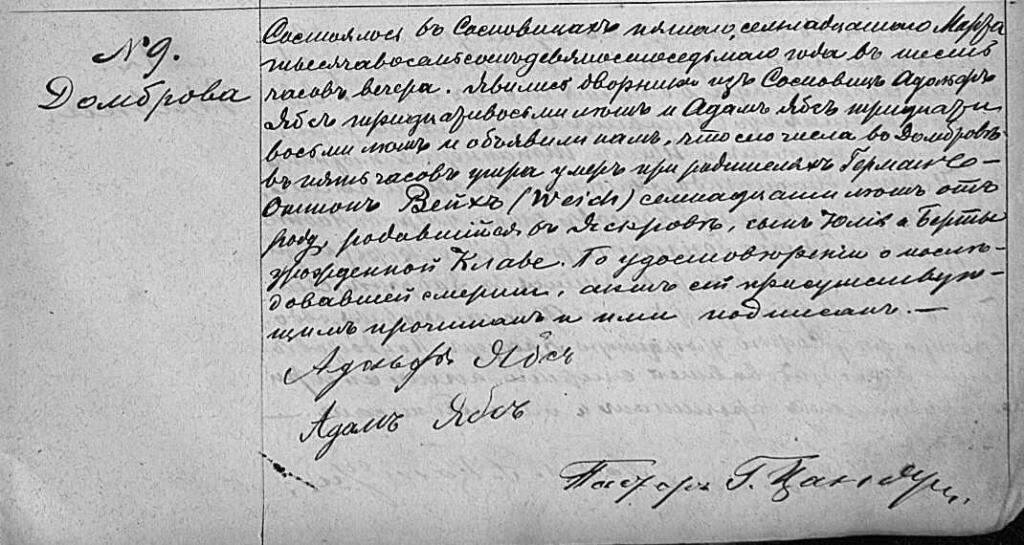 № 9.
Домброва
Состоялось въ Сосновицахъ пятаго, семнадцатаго Марта
тысяча восемьсотъ девяносто седьмаго года въ шесть
часовъ вечера. Явились дворники изъ Сосновицъ Адольфъ
Ябсъ тридцати восьми лѣтъ и Адамъ Ябсъ тридцати
восьми лѣтъ и объявили намъ, что сего числа въ Домбровѣ
въ пять часовъ утра умеръ при родителяхъ Германъ
Оттонъ Вейхъ (Weich) семнадцати лѣтъ отъ
роду, родившійся въ, сынъ Юлія и Берты
урожденной Клаве. По удостовѣреніи о послѣ-
довавшей смерти, актъ сей присутствую-
щимъ прочитанъ и ими подписанъ. —
Адольфъ Ябсъ
Адамъ Ябсъ
Пасторъ Г.